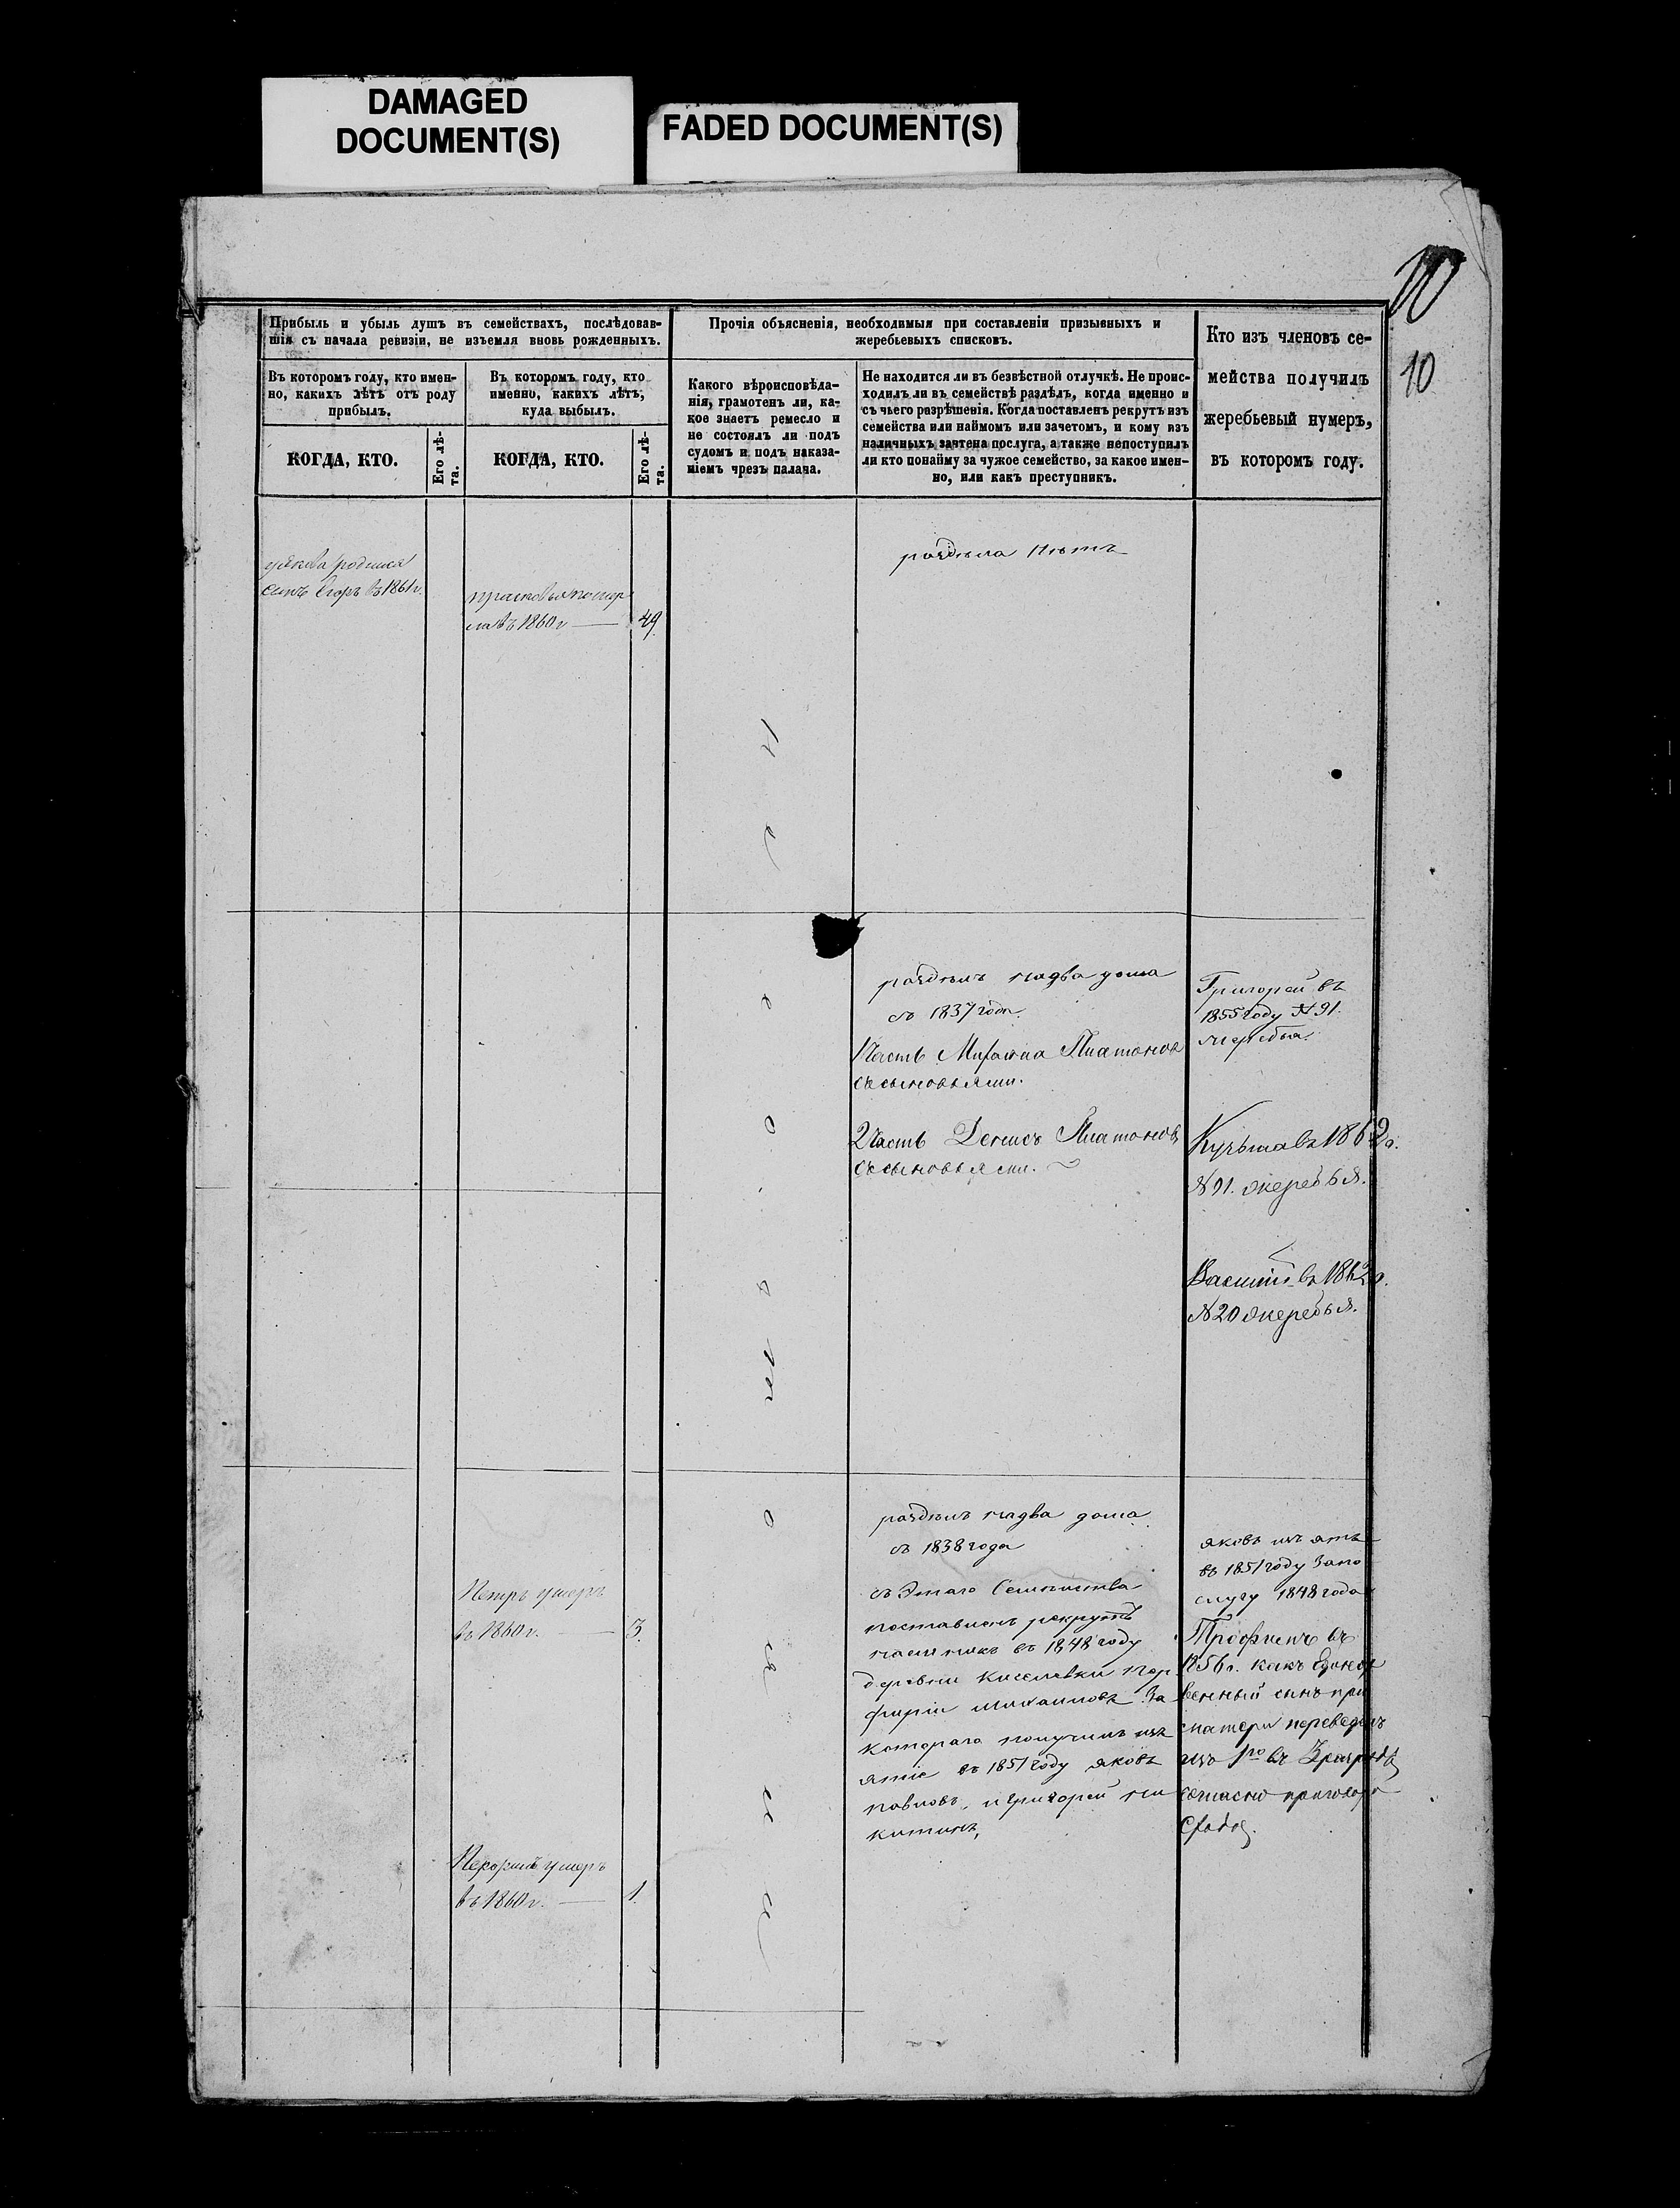 DAMAGED
DOCUMENT(S)
FADED DOCUMENT(S)
10
10
Прибыль и убыль душъ въ семействахъ, послѣдовав-
шія съ начала ревизіи, не изъемля вновь рожденныхъ.
Въ которомъ году, кто имен-
но, какихъ лѣтъ отъ роду
прибылъ.
КОГДА, КТО.
Его лѣ-
та.
Въ которомъ году, кто
именно, какихъ лѣтъ,
куда выбылъ.
КОГДА, КТО.
Его лѣ-
та.
Прочія объясненія, необходимыя при составленіи призывныхъ и
жеребьевыхъ списковъ.
Какого вѣроисповѣда-
нія, грамотенъ ли, ка-
кое знаетъ ремесло и
не состоялъ ли подъ
судомъ и подъ наказа-
ніемъ чрезъ палача.
Не находится ли въ безвѣстной отлучкѣ. Не проис-
ходилъ ли въ семействѣ раздѣлъ, когда именно и
съ чьего разрѣшенія. Когда поставленъ рекрутъ изъ
семейства или наймомъ или зачетомъ, и кому изъ
наличныхъ зачтена послуга, а также непоступилъ
ли кто понайму за чужое семейство, за какое имен-
но, или какъ преступникъ.
Кто изъ членовъ се-
мейства получилъ
жеребьевый нумеръ,
въ которомъ году.
уякова родился
сынъ Егоръ въ 1861 г.
прасковья помер
ла въ 1860 г 49
раздѣла нѣтъ
раздѣлъ надва дома
съ 1837 года.
1 Часть Платонов
съсыновьями.
2 Часть Денисъ Платоновъ
съсыновьями.
Григорей въ
1855 году № 91.
Кузьма въ 1862 г.
№ 91. жеребья.
Василій въ 1862 г.
№ 20 жеребья.
раздѣлъ надва дома
съ 1838 года
съ Этаго Семѣйства
поставленъ рекрутъ
въ 1848 году
деревни Киселевки пор
фирій за
котораго получилъ изъ
ятіе въ 1851 году яковъ
павловъ, и Григорей ни
китинъ,
яковъ изъятъ
въ 1851 году Запо
слугу 1848 года
Трофимъ въ
1856 г. какъ Единст
венный сынъ при
матери переведенъ
изъ 1го въ 3 разрядъ
согласно приговора
Петръ умеръ
въ 1860 г. 3.
умеръ
въ 1860 г. 1.